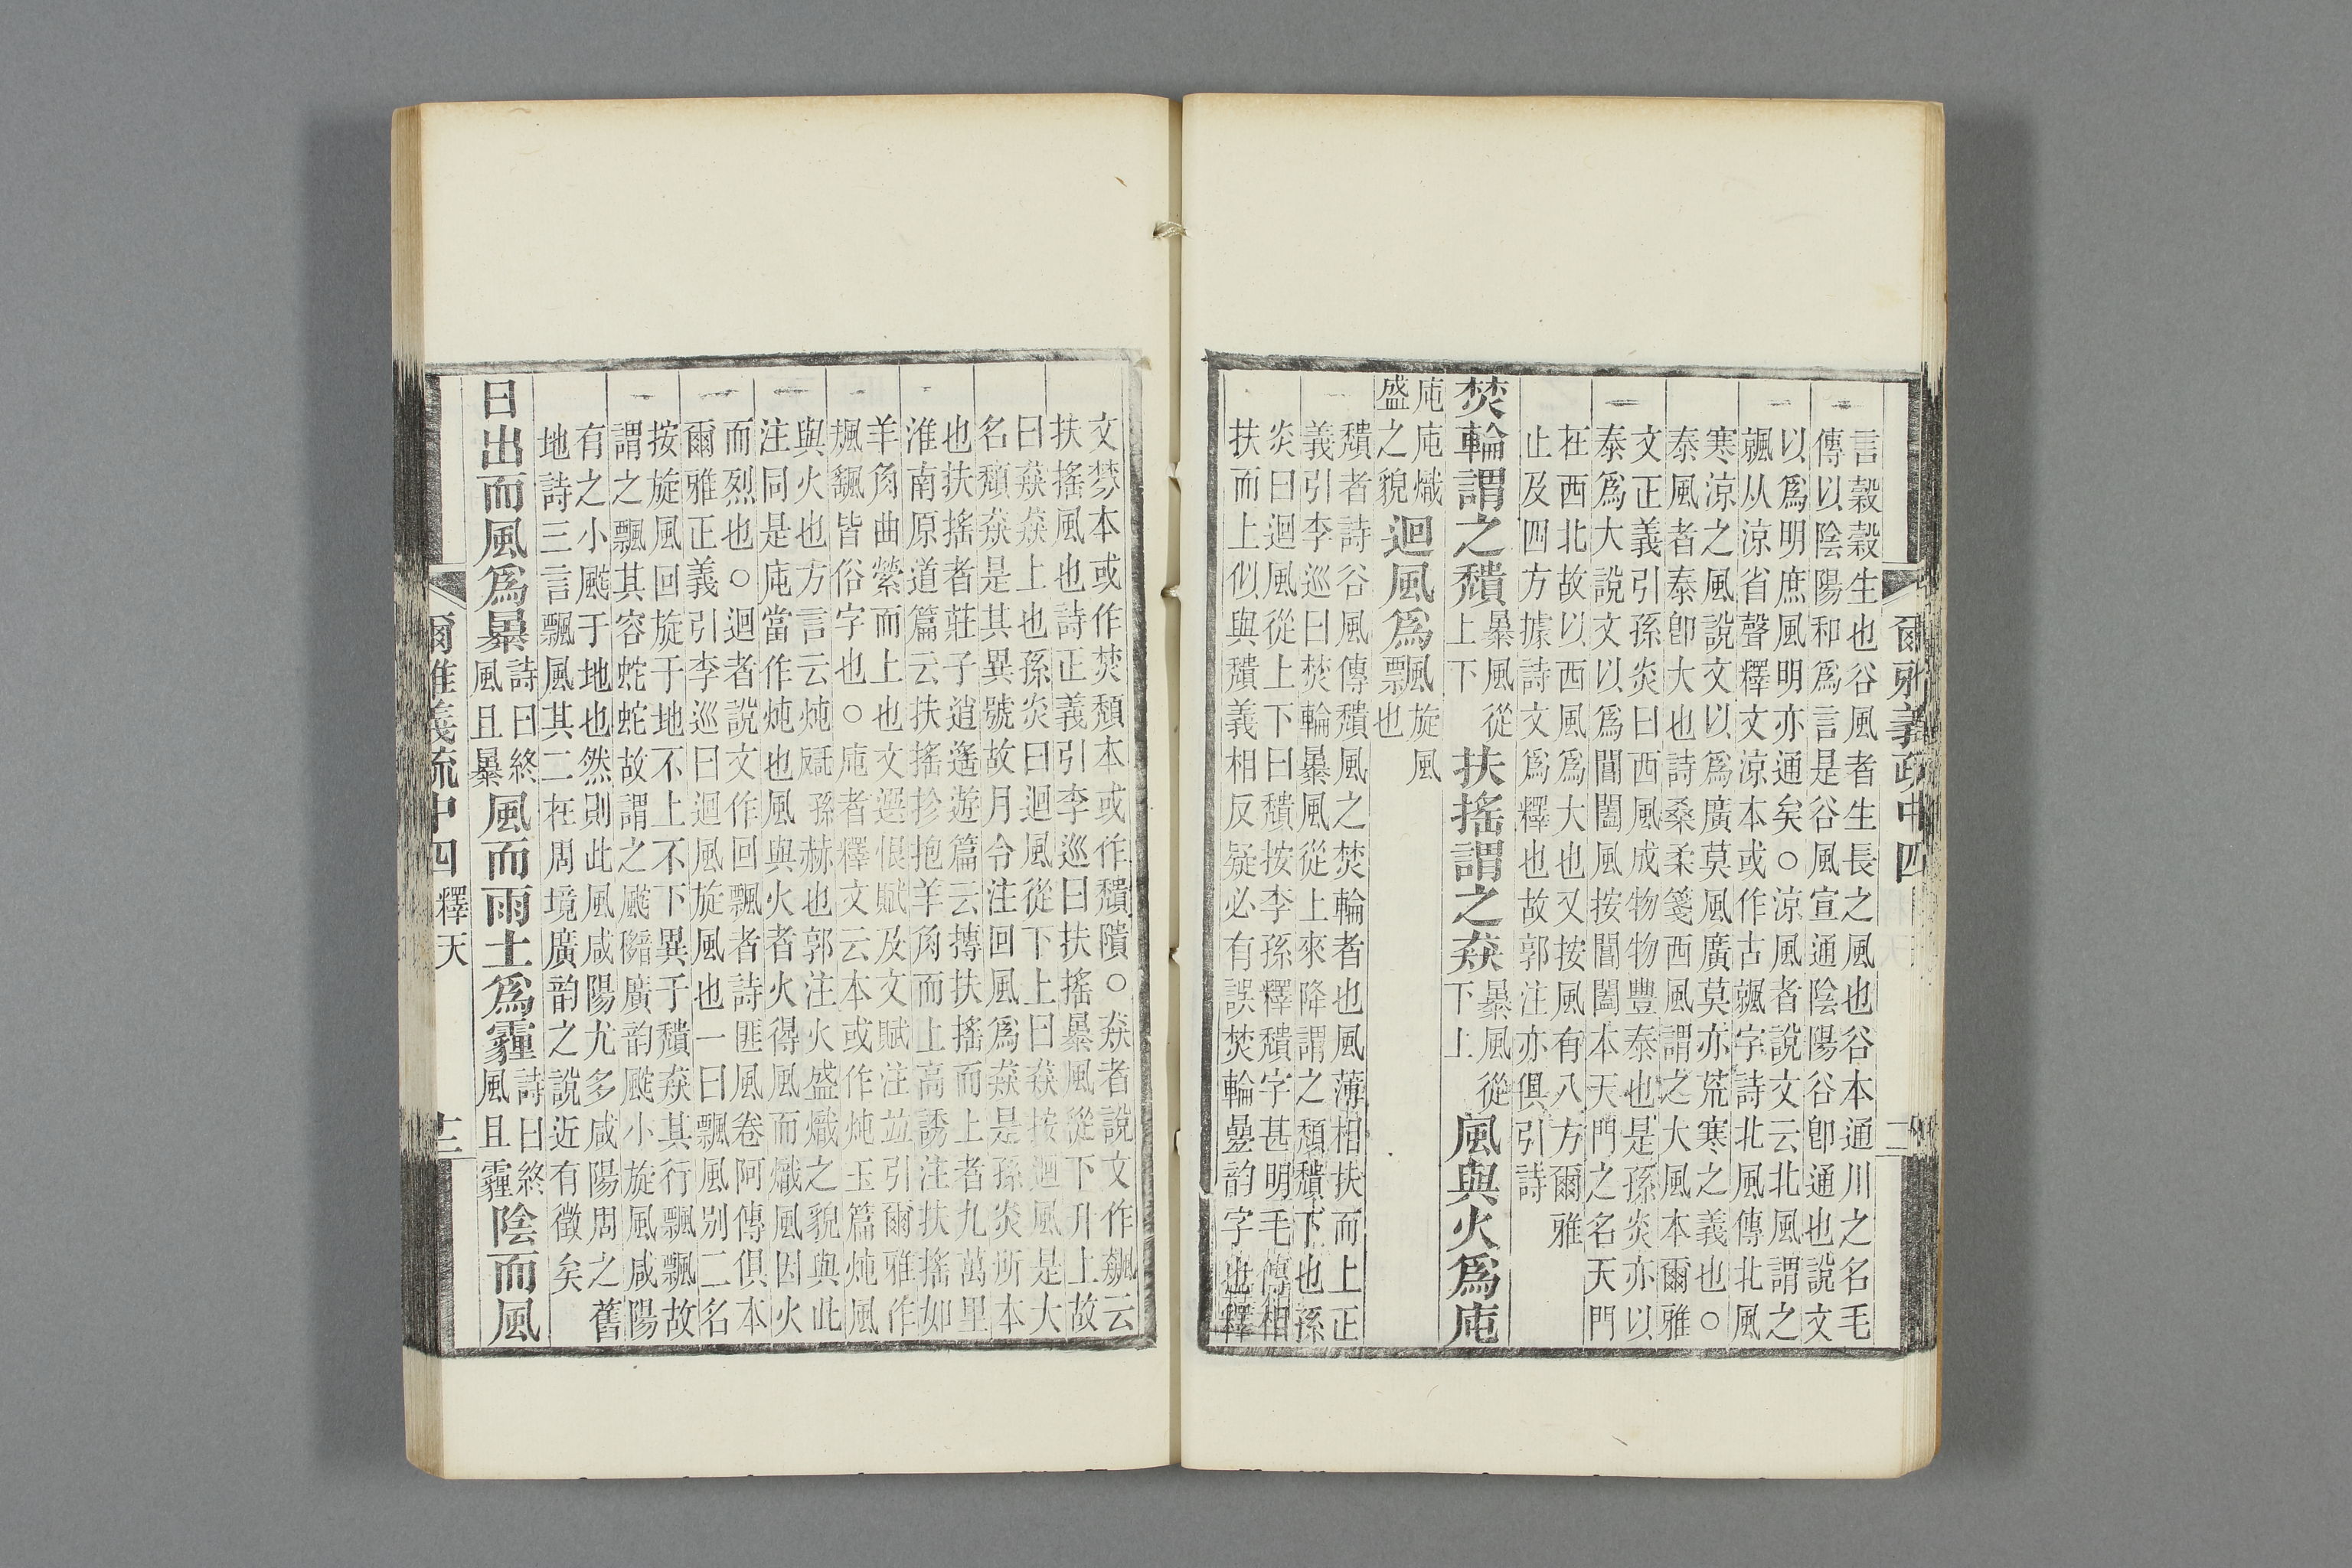 言穀穀生也谷風者生長之風也谷本通川之名毛
傳以陰陽和爲言是谷風宣通陰陽谷卽通也說文
以爲明庶風明亦通矣○涼風者說文云北風謂之
飆从涼省聲釋文涼本或作古飆字詩北風傳北風
寒涼之風說文以爲廣莫風廣莫亦荒寒之義也○
泰風者泰卽大也詩桑柔箋西風謂之大風本爾雅
文正義引孫炎曰西風成物物豐泰也是孫炎亦以
泰爲大說文以爲閶闔風按閶闔本天門之名天門
在西北故以西風爲大也又按風有八方爾雅
止及四方據詩文爲釋也故郭注亦俱引詩
焚輪謂之穨
暴風從
上下
扶搖謂之猋
暴風從
下上
風與火爲庉
庉庉熾
盛之貌
迴風爲
飄
旋風
也
穨者詩谷風傳穨風之焚輪者也風薄相扶而上正
義引李巡曰焚輪暴風從上來降謂之穨穨下也孫
炎曰迴風從上下曰穨按李孫釋穨字甚明毛傳相
扶而上似與穨義相反疑必有誤焚輪曡韵字也釋
文棼本或作焚穨本或作穨隤○猋者說文作飆云
扶搖風也詩正義引李巡曰扶搖暴風從下升上故
曰猋猋上也孫炎曰迴風從下上曰猋按迴風是大
名穨猋是其異號故月令注回風爲猋是孫炎所本
也扶搖者莊子逍遙遊篇云摶扶搖而上者九萬里
淮南原道篇云扶搖抮抱羊角而上高誘注扶搖如
羊角曲縈而上也文選恨賦及文賦注竝引爾雅作
颫颻皆俗字也○庉者釋文云本或作炖玉篇炖風
與火也方言云炖㷄赫也郭注火盛熾之貌與此
注同是庉當作炖也風與火者火得風而熾風因火
而烈也○迴者說文作回飄者詩匪風卷阿傳俱本
爾雅正義引李巡曰迴風旋風也一曰飄風别二名
按旋風回旋于地不上不下異于穨猋其行飄飄故
謂之飄其容蛇蛇故謂之䬀廣韵䬀小旋風咸陽
有之小䬀于地也然則此風咸陽尤多咸陽周之舊
地詩三言飄風其二在周境廣韵之說近有徵矣
日出而風爲暴
詩曰終
風且暴
風而雨土爲霾
詩曰終
風且霾
陰而風
爾雅義疏中四 釋天